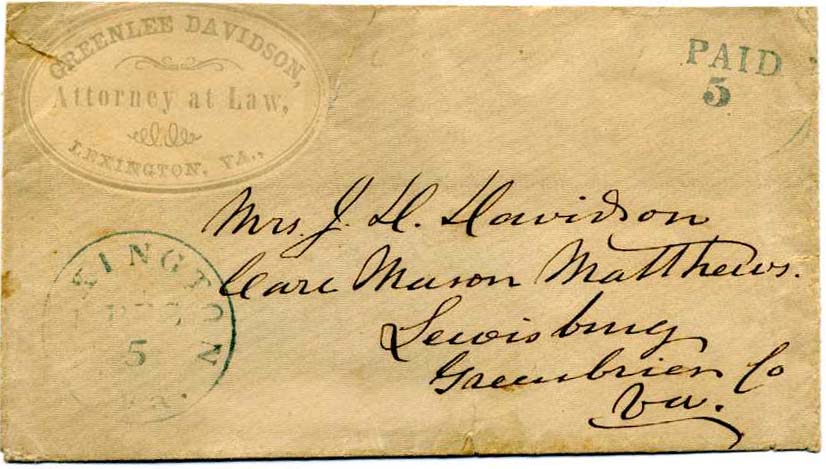 GREENLEE DAVIDSON,
Attorney at Law,
LEXINGTON, VA.,
PAID
5
Mrs. J. H. Davidson
Care Mason Matthews.
Lewisburg
Greenbrier Co
Va.
XINGTON
5
Va.